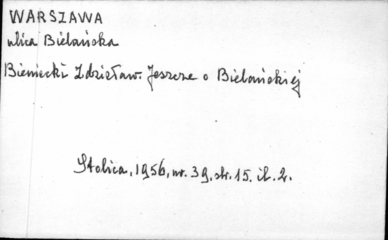 WARSZAWA
ulica Bielańska
Bieniecki Zdzisław. Jeszcze o Bielańskiej
Stolica, 1956, nr. 39, str. 15. il. 2.